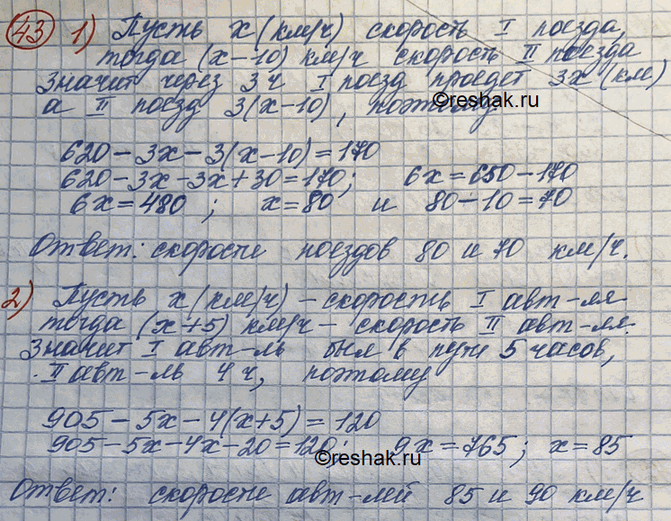 43 1) Пусть x (км/ч) скорость I поезда,
тогда (x-10) км/ч скорость II поезда
Значит через 3ч I поезд проедет 3x (км)
а II поезд 3(x-10), поэтому
©reshak.ru
620-3x-3(x-10)=170
620-3x-3x+30=170; 6x=650-170
6x=480; x=80 и 80-10=70
Ответ: скорости поездов 80 и 70 км/ч.
2) Пусть x (км/ч) - скорость I авт-ля
тогда (x+5) км/ч - скорость II авт-ля.
Значит I авт-ль был в пути 5 часов,
II авт-ль 4 ч, поэтому
905-5x-4(x+5)=120
905-5x-4x-20=120; 9x=765; x=85
©reshak.ru
Ответ: скорости авт-лей 85 и 90 км/ч